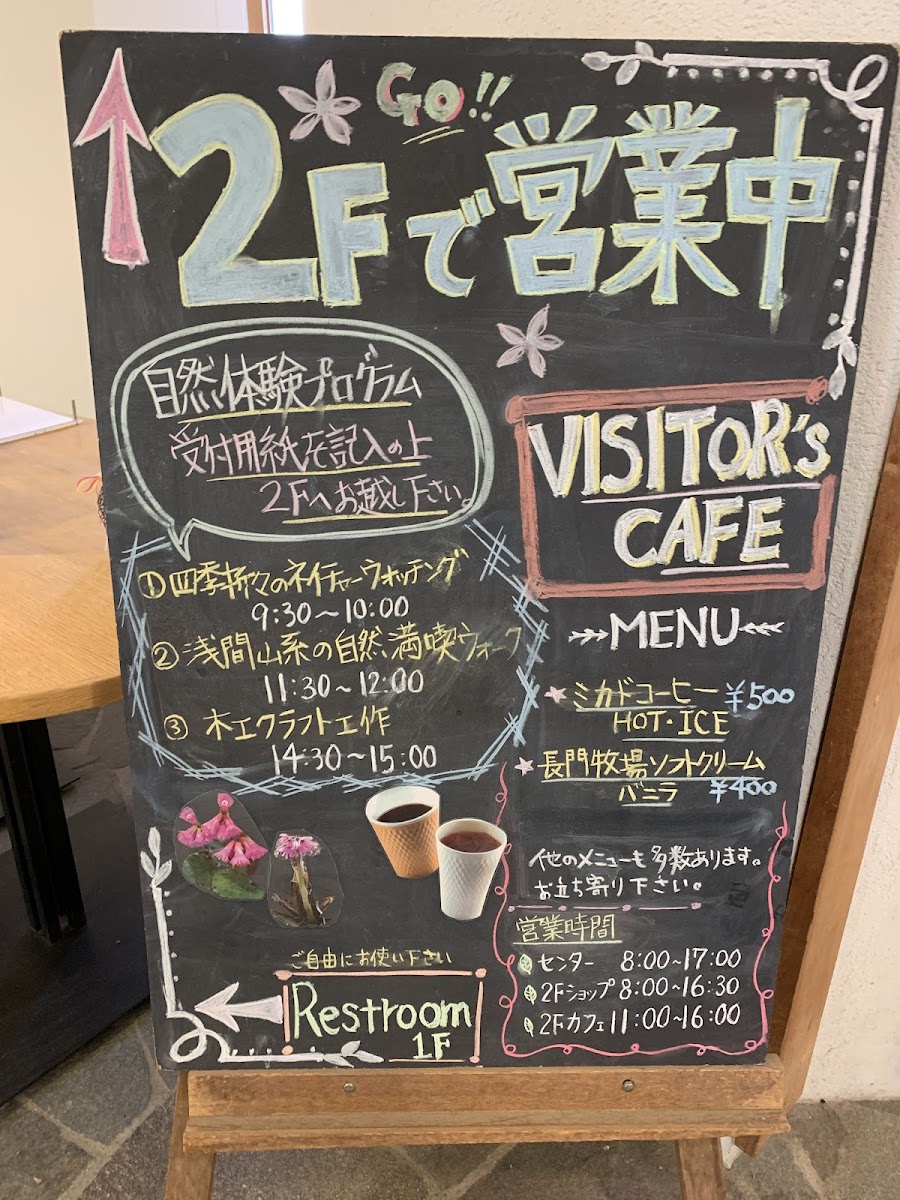 Go!!
2Fで営業中
自然体験プログラム
受付用紙を記入の上
2Fへお越し下さい。
①四季折々のネイチャーウォッチング
9:30〜10:00
②浅間山系の自然満喫ウォーク
11:30〜12:00
③ 木工クラフト工作
14:30〜15:00
VISITOR's
CAFE
MENU
ミカドコーヒー ¥500
HOT・ICE
長門牧場ソフトクリーム
バニラ ¥400
他のメニューも多数あります。
お立ち寄り下さい。
営業時間
センター 8:00~17:00
2Fショップ 8:00~16:30
2Fカフェ 11:00~16:00
ご自由にお使い下さい
Restroom
1F